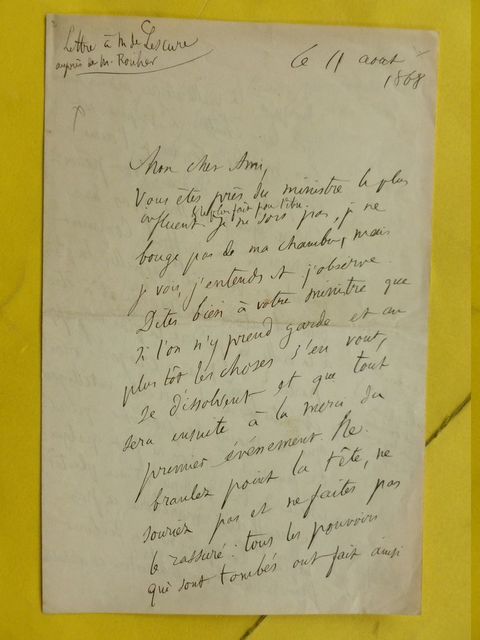 Lettre à M de Lescure
auprès de M. Rouher
le 11 aout
1868
Mon cher Ami,
Vous êtes près du ministre le plus
influent & le plus fait pour l'être. Je ne sors pas, je ne
bouge pas de ma chambre, mais
je vois, j'entends et j'observe.
Dites bien à votre ministre que
si l'on n'y prend garde et au
plus tôt les choses s'en vont,
se dissolvent et que tout
sera ensuite à la merci du
premier événement. Ne
branlez point la tête, ne
souriez pas et ne faites pas
le rassuré: tous les pouvoirs
qui sont tombés ont fait ainsi